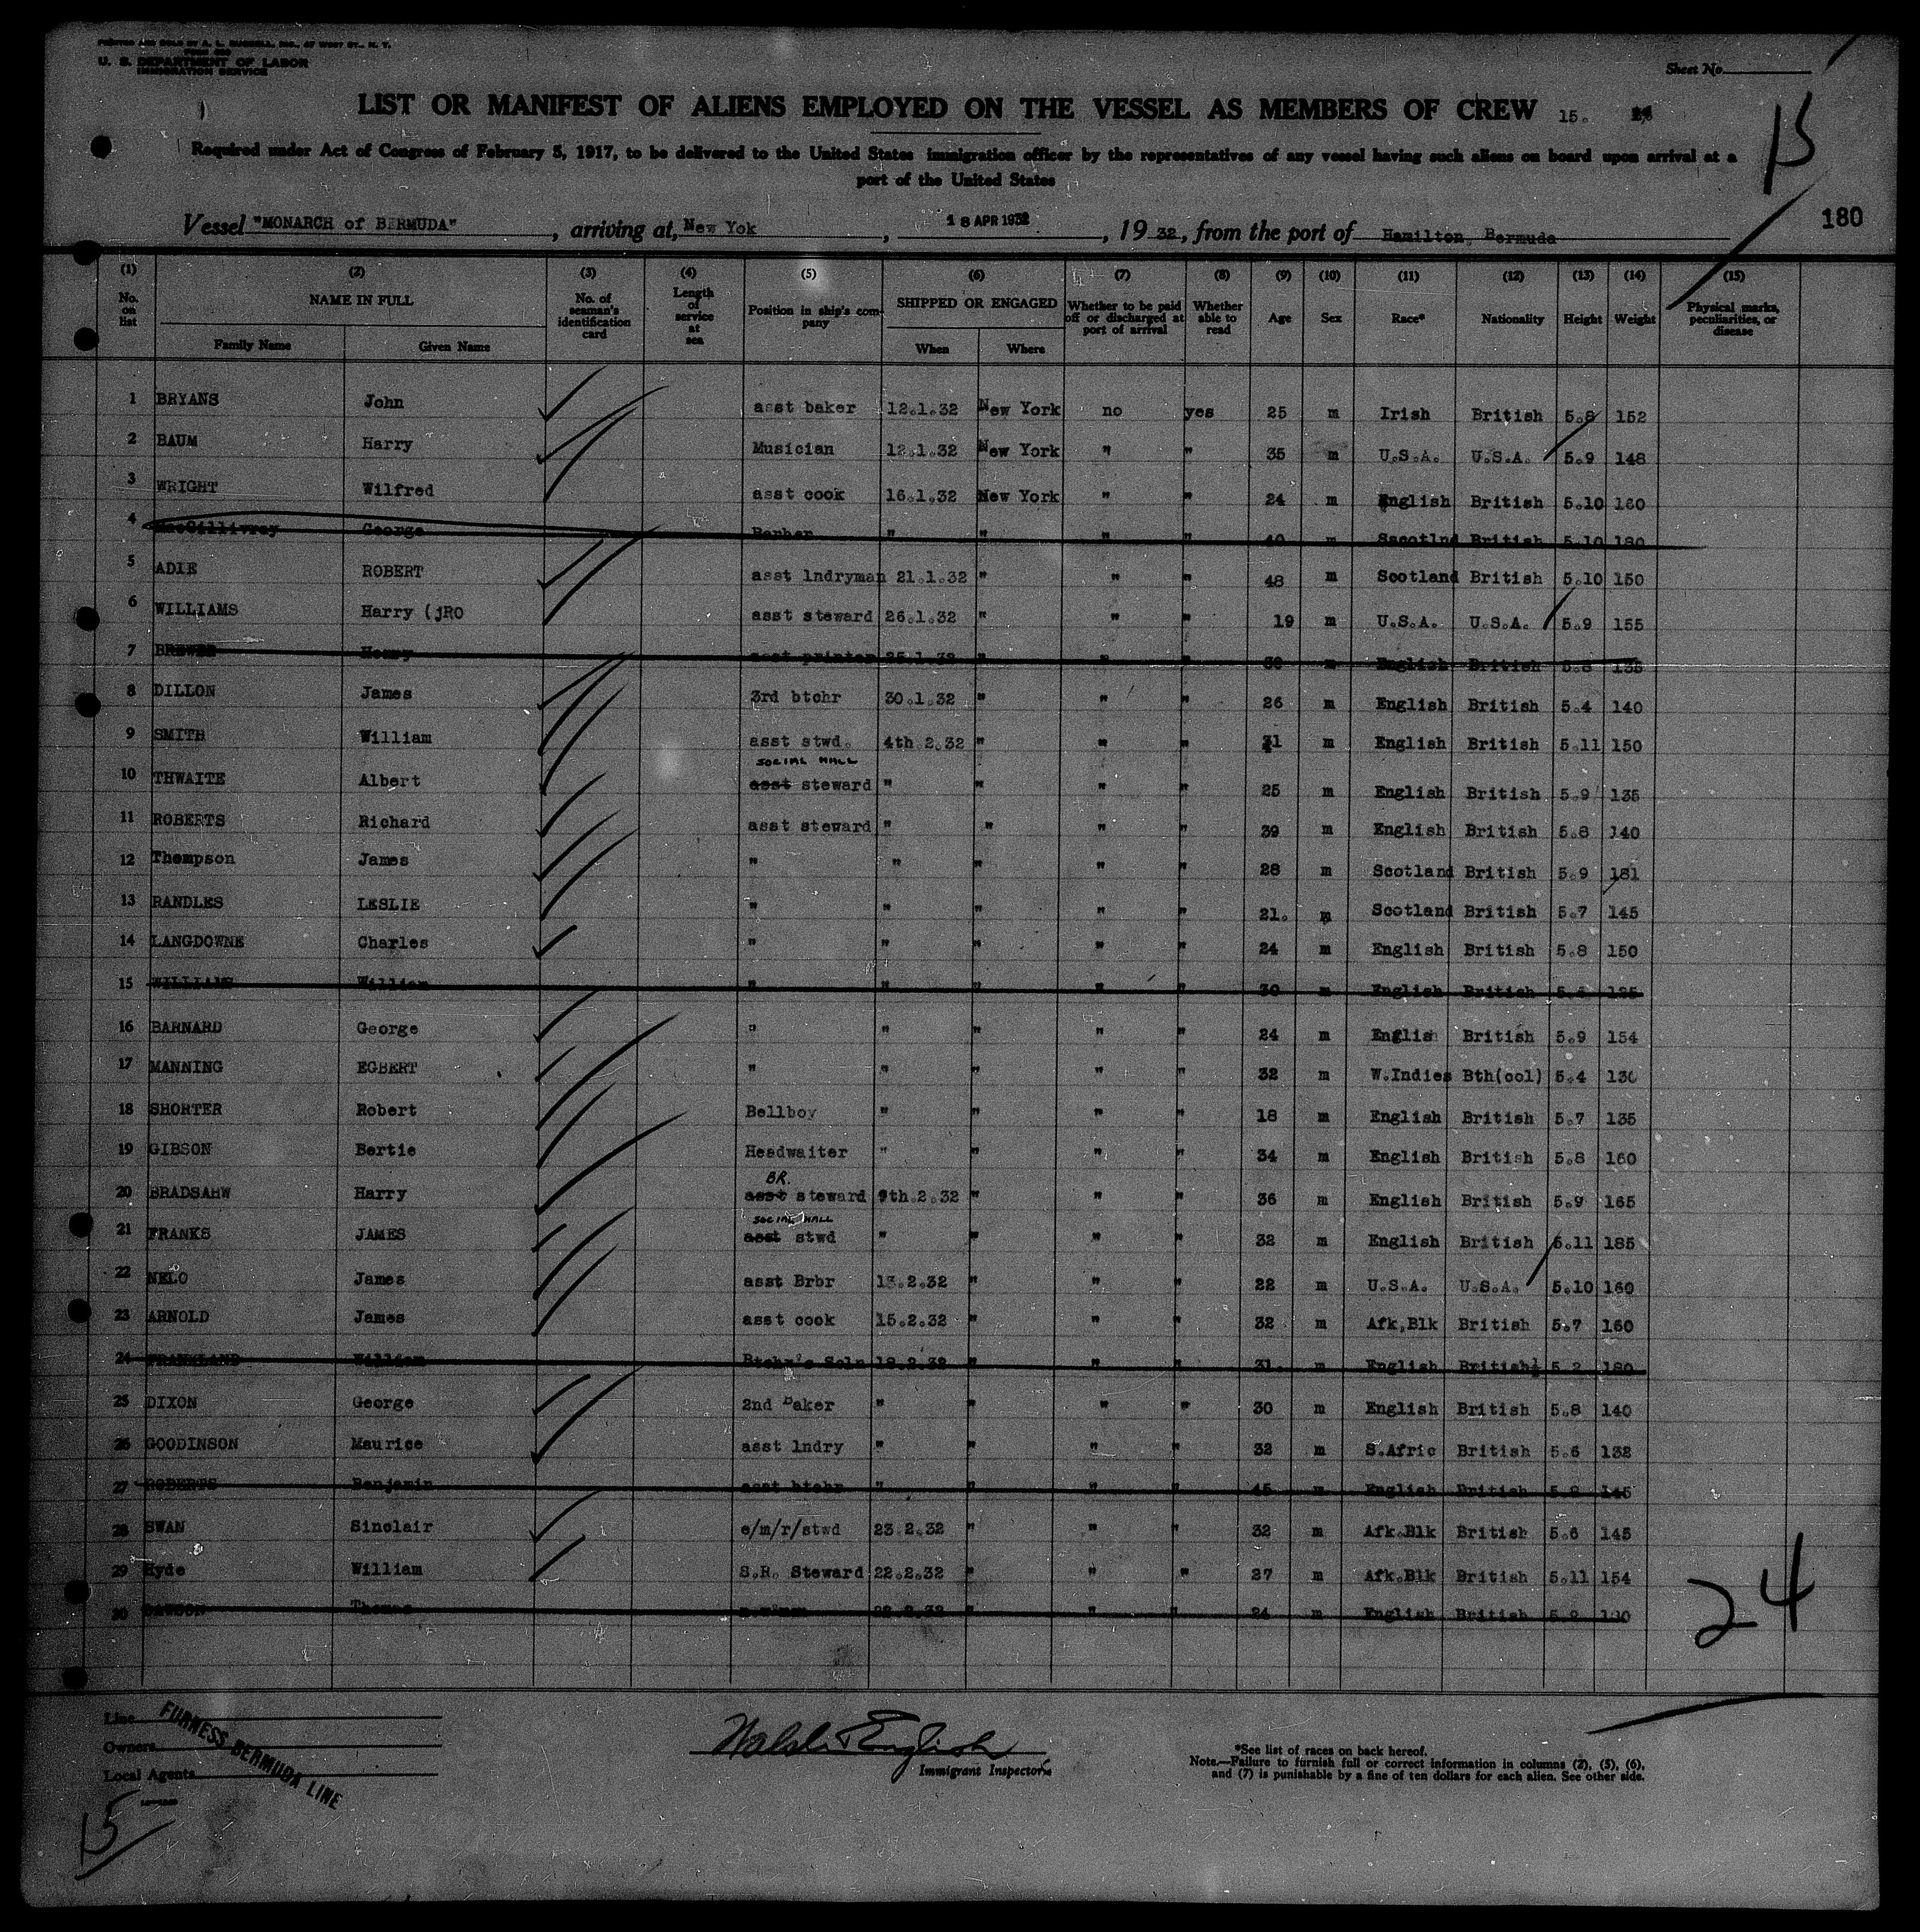 PRINTED AND SOLD BY A. L. RUSSELL, INC., 47 WEST ST., N. Y.
U. S. DEPARTMENT OF LABOR
IMMIGRATION SERVICE
Sheet No.
LIST OR MANIFEST OF ALIENS EMPLOYED ON THE VESSEL AS MEMBERS OF CREW 15.
15
Required under Act of Congress of February 5, 1917, to be delivered to the United States immigration officer by the representatives of any vessel having such aliens on board upon arrival at a
port of the United States
180
Vessel "MONARCH of BERMUDA", arriving at, New Yok, 18 APR 1932, 19 32, from the port of Hamilton, Bermuda
(1) (2) (3) (4) (5) (6) (7) (8) (9) (10) (11) (12) (13) (14) (15)
No. on list NAME IN FULL Family Name Given Name No. of seaman's identification card Length of service at sea Position in ship's company SHIPPED OR ENGAGED When Where Whether to be paid off or discharged at port of arrival Whether able to read Age Sex Race* Nationality Height Weight Physical marks, peculiarities, or disease
1 BRYANS John asst baker 12.1.32 New York no yes 25 m Irish British 5.8 152
2 BAUM Harry Musician 12.1.32 New York " " 35 m U.S.A. U.S.A. 5.9 148
3 WRIGHT Wilfred asst cook 16.1.32 New York " " 24 m English British 5.10 160
4 MacGillivrey George Barber " " " " 40 m Sscotlnd British 5.10 180
5 ADIE ROBERT asst lndryman 21.1.32 " " " 48 m Scotland British 5.10 150
6 WILLIAMS Harry (jRO asst steward 26.1.32 " " " 19 m U.S.A. U.S.A. 5.9 155
7 BREWER Henry asst printer 25.1.32 " " " 30 m English British 5.8 135
8 DILLON James 3rd btchr 30.1.32 " " " 26 m English British 5.4 140
9 SMITH William asst stwd. 4th 2.32 " " " 31 m English British 5.11 150
SOCIAL HALL
10 THWAITE Albert asst steward " " " " 25 m English British 5.9 135
11 ROBERTS Richard asst steward " " " " 39 m English British 5.8 140
12 Thompson James " " " " " 28 m Scotland British 5.9 181
13 RANDLES LESLIE " " " " " 21. m Scotland British 5.7 145
14 LANGDOWNE Charles " " " " " 24 m English British 5.8 150
15 WILLIAMS William " " " " " 30 m English British
16 BARNARD George " " " " " 24 m Englis British 5.9 154
17 MANNING EGBERT " " " " " 32 m W.Indies Bth(col) 5.4 130
18 SHORTER Robert Bellboy " " " " 18 m English British 5.7 135
19 GIBSON Bertie Headwaiter " " " " 34 m English British 5.8 160
BR.
20 BRADSAHW Harry asst steward 9th.2.32 " " " 36 m English British 5.9 165
SOCIAL HALL
21 FRANKS JAMES asst stwd " " " " 32 m English British 5.11 185
22 NELO James asst Brbr 13.2.32 " " " 22 m U.S.A. U.S.A. 5.10 160
23 ARNOLD James asst cook 15.2.32 " " " 32 m Afk,Blk British 5.7 160
24 FRANKLAND William Btchr's Scln 18.2.32 " " " 31. m English British 5 2 180
25 DIXON George 2nd Baker " " " " 30 m English British 5.8 140
26 GOODINSON Maurice asst lndry " " " " 32 m S.Afric British 5.6 132
27 ROBERTS Benjamin asst btchr " " " " 45 m English British 5.8 145
28 SWAN Sinclair e/m/r/stwd 23.2.32 " " " 32 m Afk.Blk British 5.6 145
29 Hyde William S.R. Steward 22.2.32 " " " 27 m Afk.Blk British 5.11 154
30 Thomas 22.2.32 " " " 24 m English British
24
Line
Owners
Local Agents
FURNESS BERMUDA LINE
Immigrant Inspector.
*See list of races on back hereof.
Note.—Failure to furnish full or correct information in columns (2), (5), (6),
and (7) is punishable by a fine of ten dollars for each alien. See other side.
15